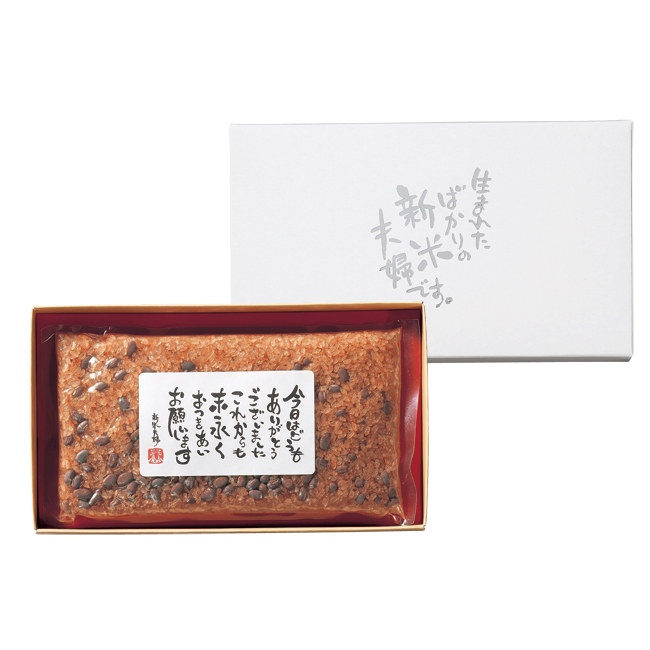 生まれた
ばかりの
新米
夫婦です。
今日はどうも
ありがとう
ございました
これからも
末永く
おつきあい
お願いします